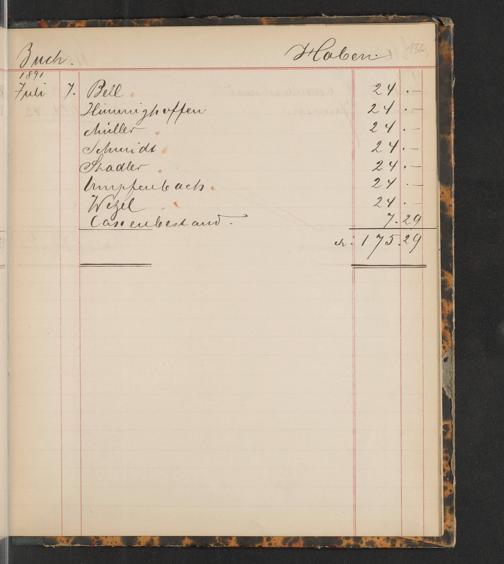 Buch. Haben.
1891
Juli 7. Beil. 24.—
Himmighoffen 24.—
Müller 24.—
Schmidt 24.—
Stadler. 24.—
Umpfenbach. 24.—
Wezel 24.—
Cassenbestand. 7.29
M: 175.29